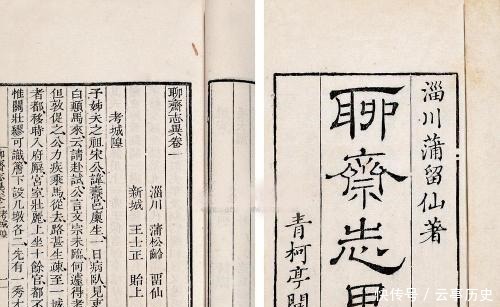 淄川蒲留仙著
聊齋志異
青柯亭開
聊齋志異卷一
淄川 蒲松齡 畱仙
新城 王士正 貽上
考城隍
予姊夫之祖宋公諱燾邑廩生一日病臥見吏
白顛馬來云請赴試公言文宗未臨何遽得考
但敦促之公力疾乘馬從去路甚生疎至一城
者都移時入府廨宮室壯麗上坐十餘官都不
惟關壯繆可識簷下設几墩各二先有一秀才
聊齋志異卷一 考城隍
快传号 / 云亭历史